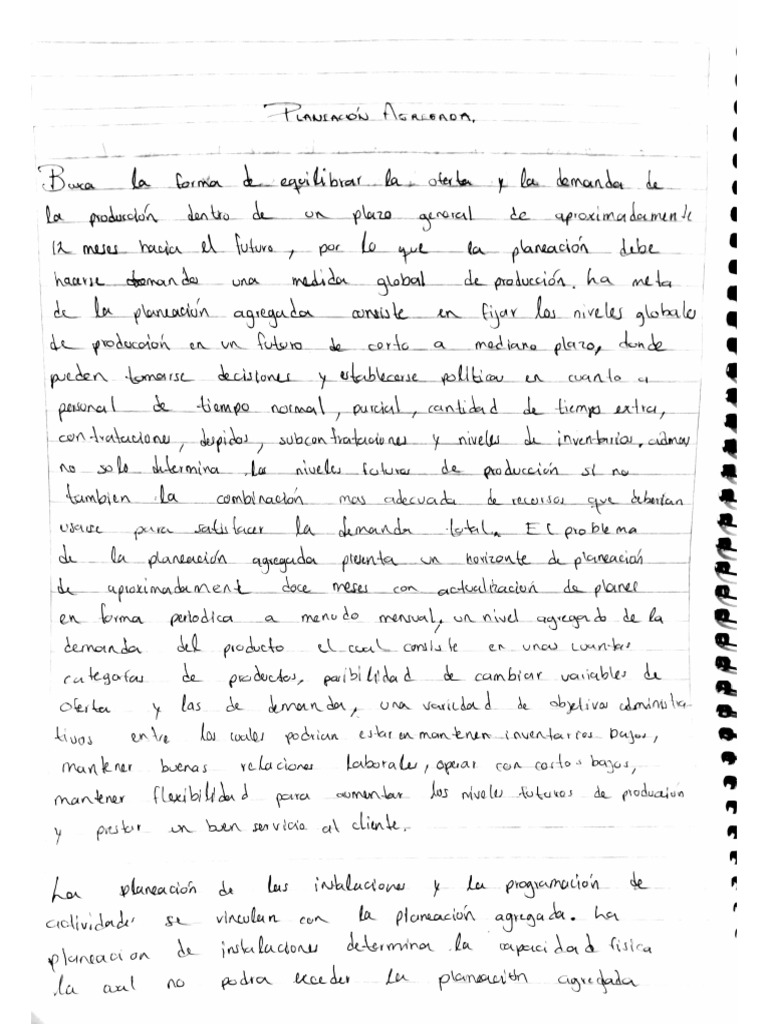 PLANEACIÓN AGREGADA.
Busca la forma de equilibrar la oferta y la demanda de
la producción dentro de un plazo general de aproximadamente
12 meses hacia el futuro, por lo que la planeación debe
hacerse tomando una medida global de producción. La meta
de la planeación agregada consiste en fijar los niveles globales
de producción en un futuro de corto a mediano plazo, donde
pueden tomarse decisiones y establecerse políticas en cuanto a
personal de tiempo normal, parcial, cantidad de tiempo extra,
contrataciones, despidos, subcontrataciones y niveles de inventarios, además
no solo determina los niveles futuros de producción si no
tambien la combinación mas adecuada de recursos que deberian
usarse para satisfacer la demanda total. El problema
de la planeación agregada presenta un horizonte de planeación
de aproximadament doce meses con actualizacion de planes
en forma periodica a menudo mensual, un nivel agregado de la
demanda del producto el cual consiste en unas cuantas
categorías de productos, posibilidad de cambiar variables de
oferta y las de demanda, una variedad de objetivos administra
tivos entre los cuales podrian estar en mantener inventarios bajos,
mantener buenas relaciones laborales, operar con costos bajos,
mantener flexibilidad para aumentar los niveles futuros de produccion
y prestar un buen servicio al cliente.
La planeación de las instalaciones y la programación de
actividades se vinculan con la planeación agregada. La
planeacion de instalaciones determina la capacidad fisica
la cual no podra exceder la planeación agregada